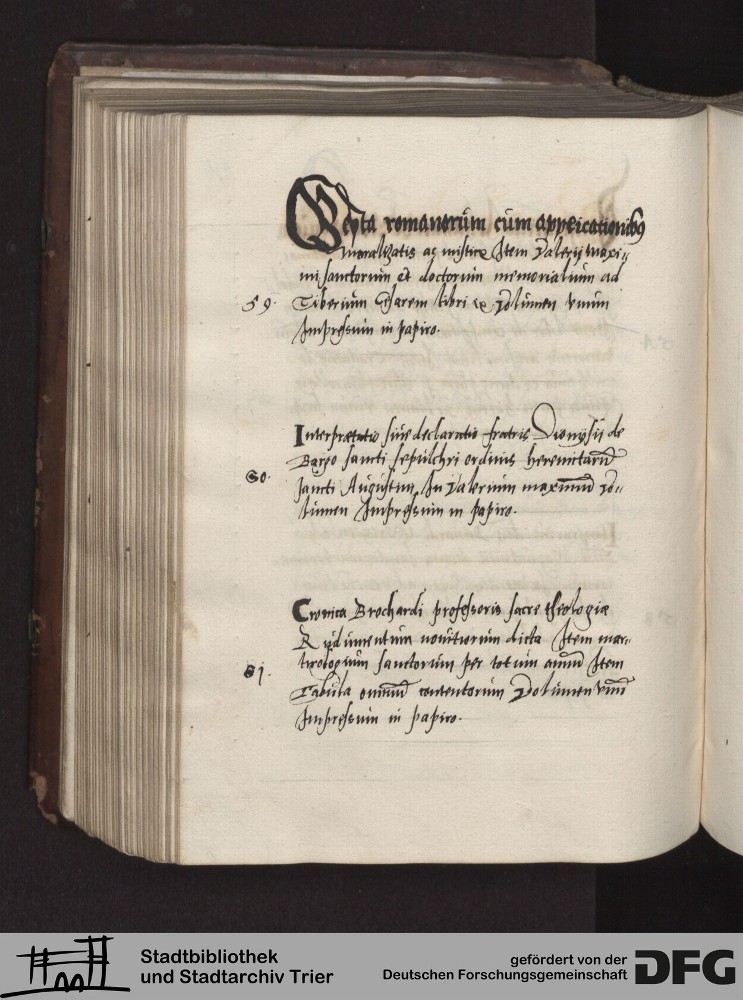 Gesta romanorum cum applicationibꝯ
moralizatis ac misticis Item Valerij maxi-
mi sanctorum et doctorum memorialium ad
59. Tiberium Cesarem libri ix Volumen vnum
Impressum in papiro.
Interpretatio siue declaratio fratris Dionysij de
Burgo sancti sepulchri ordinis heremitarū
60. sancti Augustini In Valerium maximū vo-
lumen Impressum in papiro.
Cronica Brochardi professoris sacre theologiæ
Rudimentum nouitiorum dicta Item mar-
tirologium sanctorum per totum annū Item
61. Tabula omniū contentorum Volumen vnū
Impressum in papiro.
Stadtbibliothek
und Stadtarchiv Trier
gefördert von der
Deutschen Forschungsgemeinschaft
DFG